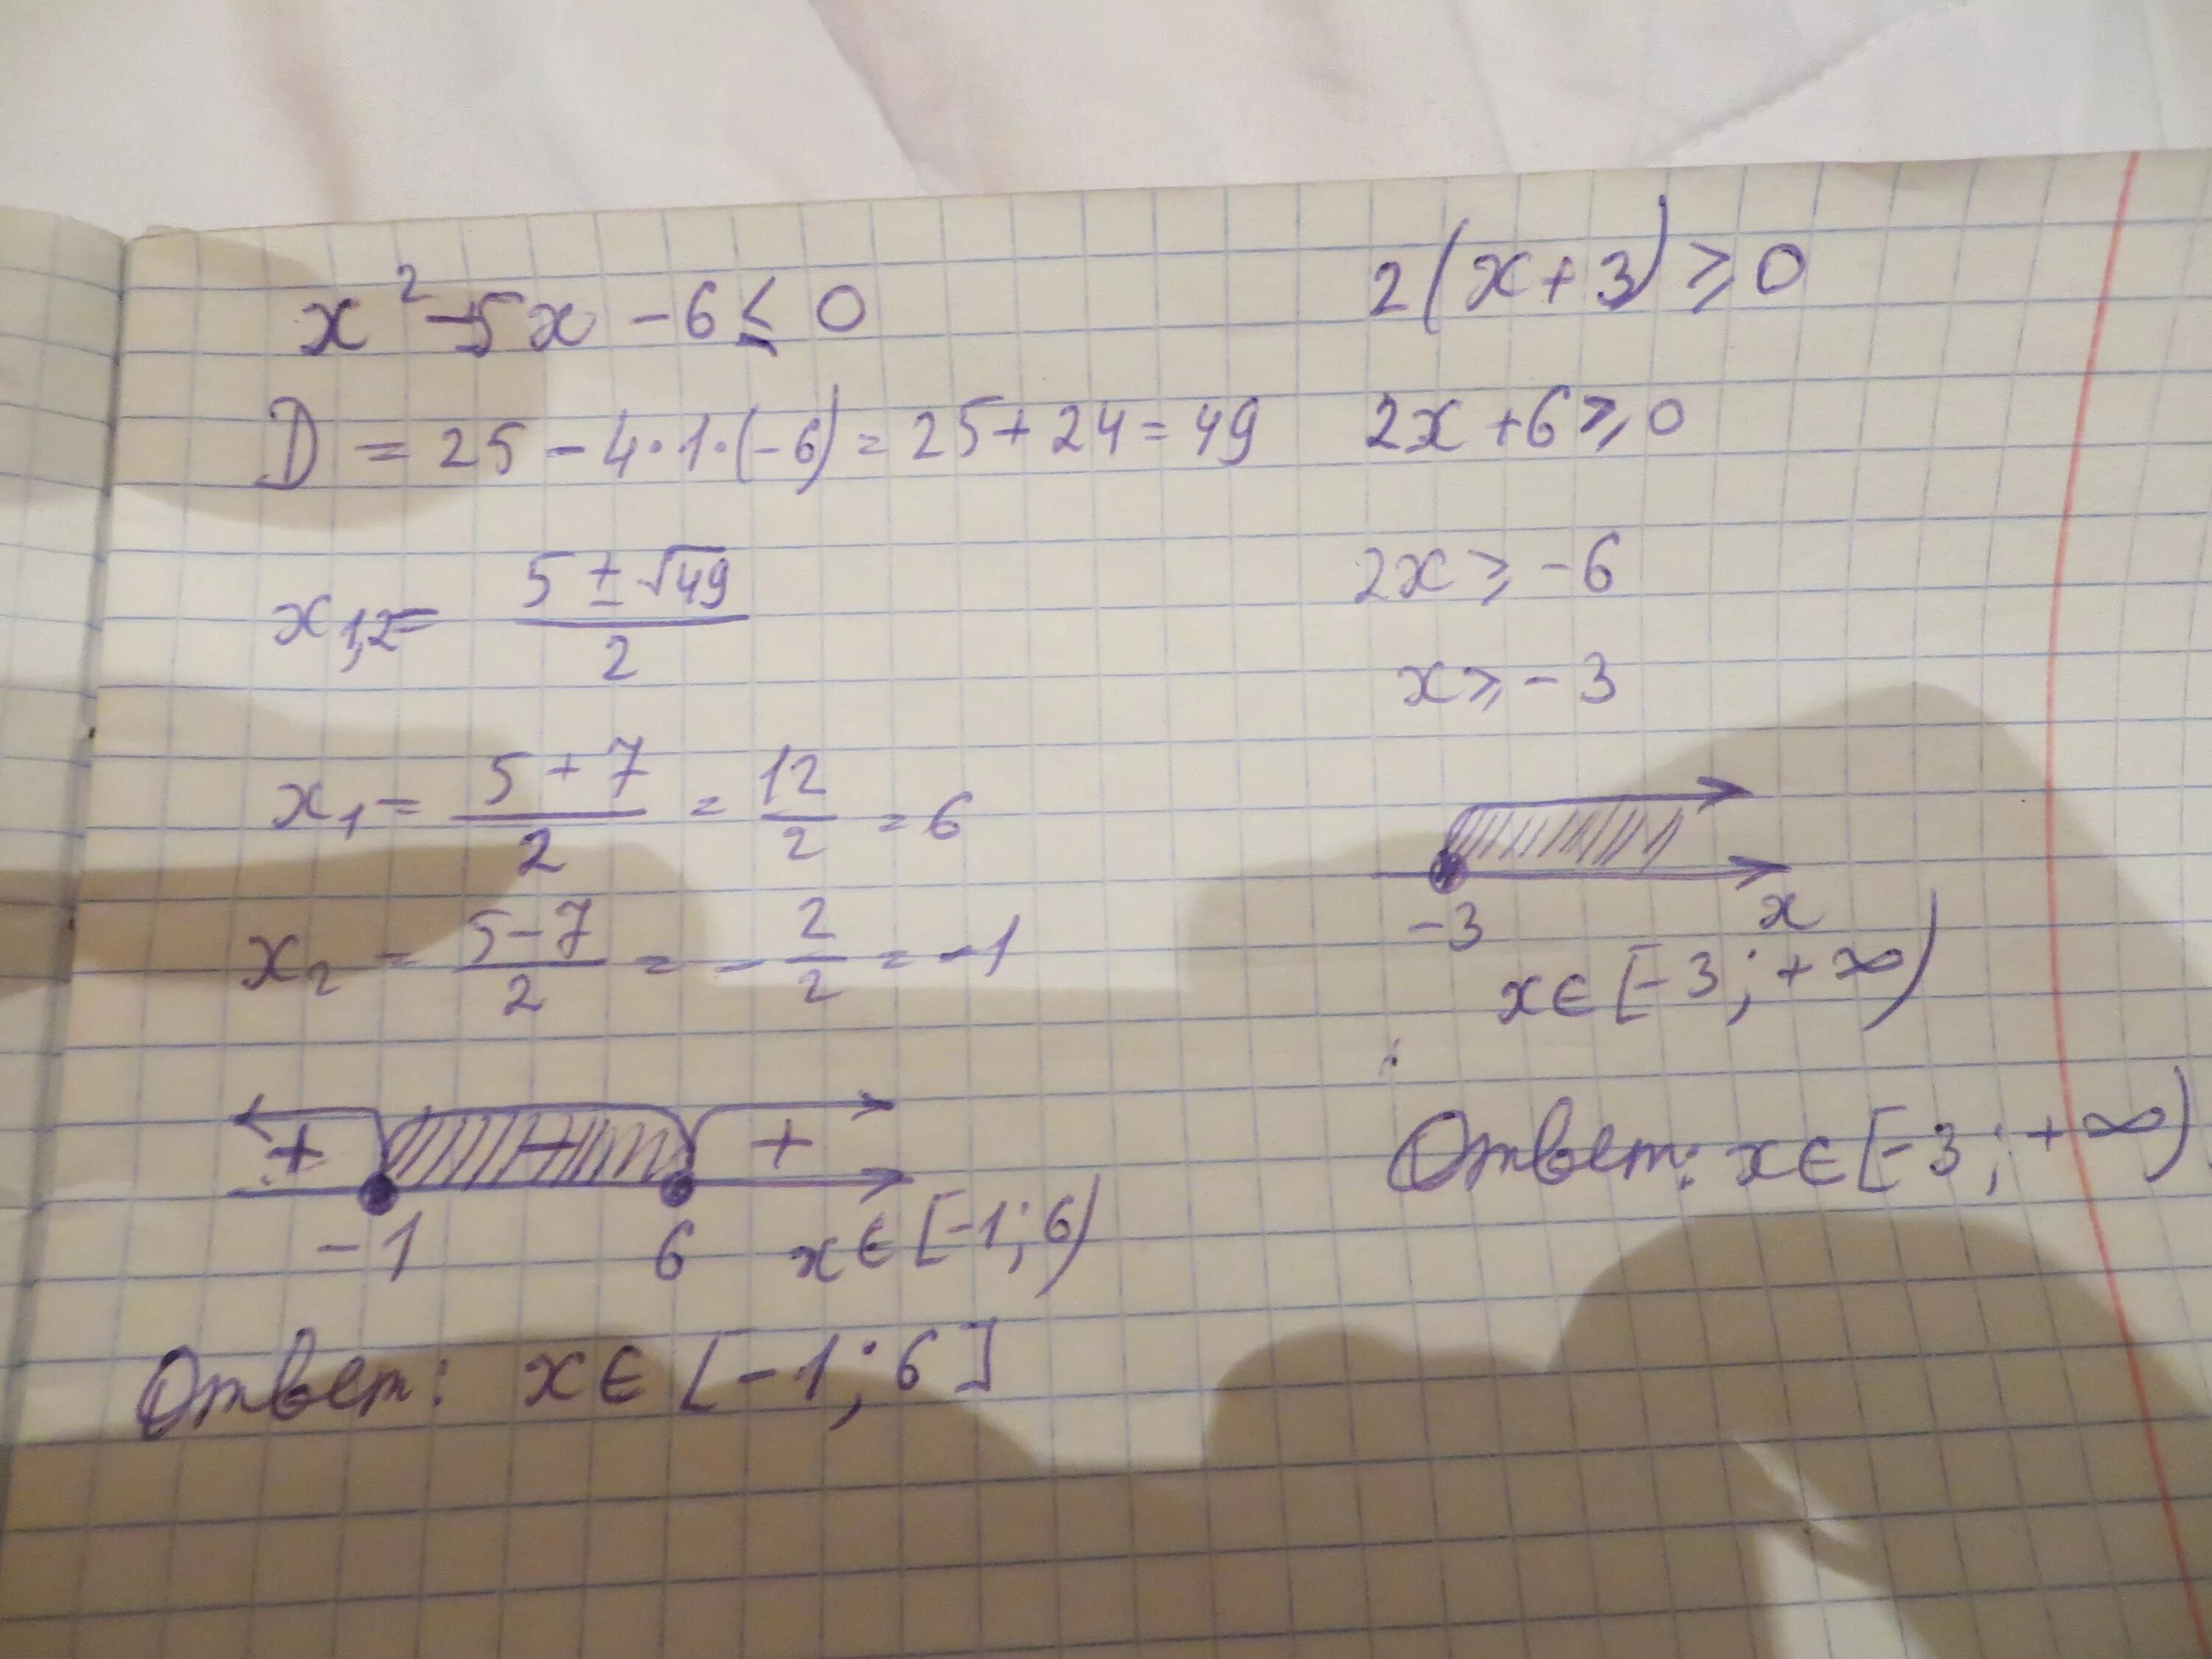 x² - 5x - 6 ≤ 0
D = 25 - 4·1·(-6) = 25 + 24 = 49
x1,2 = (5 ± √49)/2
x1 = (5 + 7)/2 = 12/2 = 6
x2 = (5 - 7)/2 = - 2/2 = -1
+ - +
-1 6 x ∈ [-1; 6)
Ответ: x ∈ [-1; 6]
2(x + 3) ≥ 0
2x + 6 ≥ 0
2x ≥ -6
x ≥ -3
-3 x
x ∈ [-3; +∞)
Ответ: x ∈ [-3; +∞)